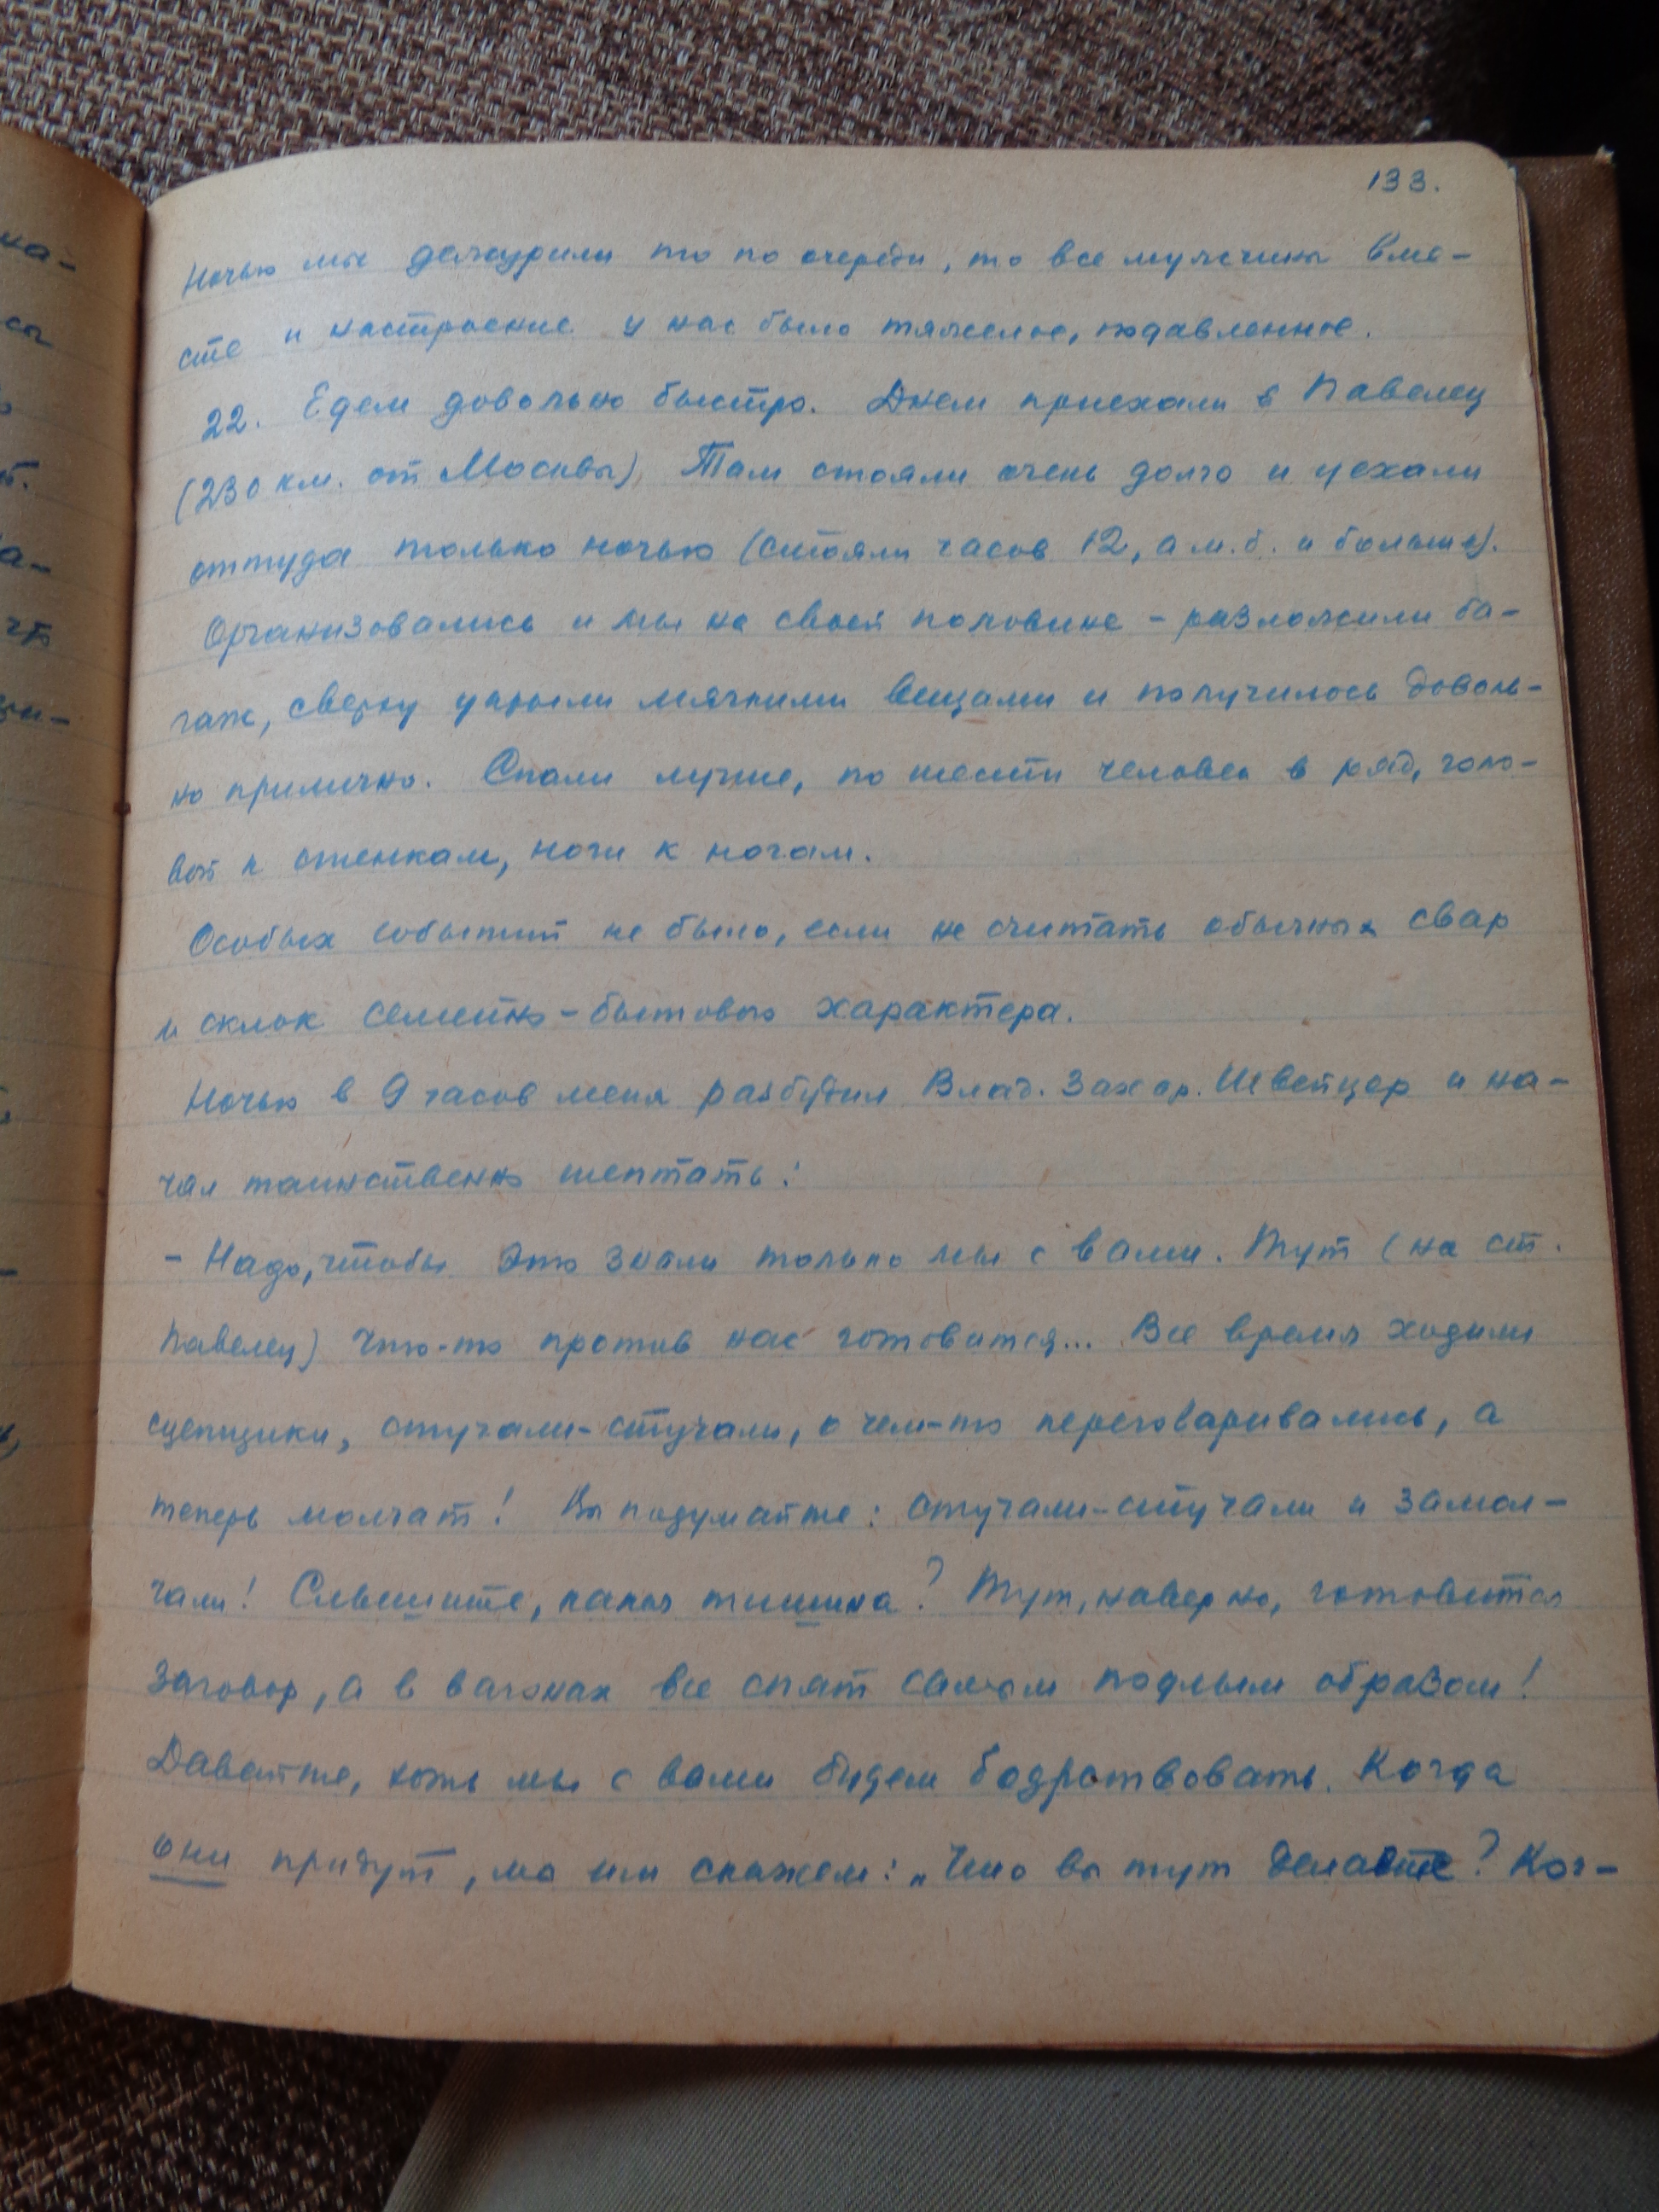 133.
Ночью мы дежурили то по очереди, то все мужчины вме-
сте и настроение у нас было тяжелое, подавленное.
22. Едем довольно быстро. Днем приехали в Павелец
(230 км. от Москвы). Там стояли очень долго и уехали
оттуда только ночью (стояли часов 12, а м.б. и больше).
Организовались и мы на своей половине - разложили ба-
гаж, сверху укрыли мягкими вещами и получилось доволь-
но прилично. Спали лучше, по шести человек в ряд, голо-
вой к стенкам, ноги к ногам.
Особых событий не было, если не считать обычных свар
и склок семейно-бытового характера.
Ночью в 9 часов меня разбудил Влад. Захар. Швейцер и на-
чал таинственно шептать:
- Надо, чтобы это знали только мы с вами. Тут (на ст.
Павелец) что-то против нас готовится... Все время ходили
сцепщики, стучали-стучали, о чем-то переговаривались, а
теперь молчат! Вы подумайте: стучали-стучали и замол-
чали! Слышите, какая тишина? Тут, наверно, готовится
заговор, а в вагонах все спят самым подлым образом!
Давайте, хоть мы с вами будем бодрствовать. Когда
они придут, мы им скажем: „Что вы тут делаете? Ког-
на-
сы
т.
а-